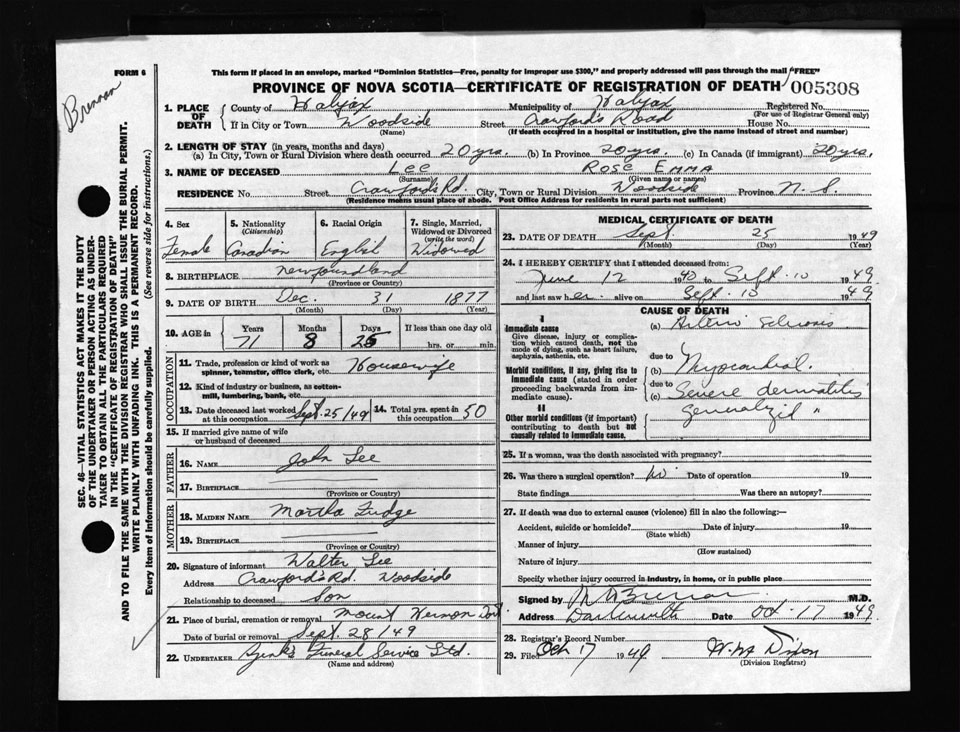 FORM 6
This form if placed in an envelope, marked "Dominion Statistics—Free, penalty for improper use $300," and properly addressed will pass through the mail "FREE"
PROVINCE OF NOVA SCOTIA—CERTIFICATE OF REGISTRATION OF DEATH 005308
Brennan
1. PLACE OF DEATH
County of Halifax Municipality of Halifax Registered No.
(For use of Registrar General only)
If in City or Town Woodside Street Crawford's Road House No.
(Name) (If death occurred in a hospital or institution, give the name instead of street and number)
2. LENGTH OF STAY (in years, months and days)
(a) In City, Town or Rural Division where death occurred 20 yrs. (b) In Province 20 yrs. (c) In Canada (if immigrant) 20 yrs.
3. NAME OF DECEASED Lee Rose Emma
(Surname) (Given name or names)
RESIDENCE No. Street Crawford's Rd. City, Town or Rural Division Woodside Province N. S.
(Residence means usual place of abode. Post Office Address for residents in rural parts not sufficient)
4. Sex
Female
5. Nationality
(Citizenship)
Canadian
6. Racial Origin
English
7. Single, Married, Widowed or Divorced
(write the word)
Widowed
8. BIRTHPLACE Newfoundland
(Province or Country)
9. DATE OF BIRTH Dec. 31 1877
(Month) (Day) (Year)
10. AGE in Years Months Days If less than one day old
71 8 25 hrs. or min.
OCCUPATION
11. Trade, profession or kind of work as spinner, teamster, office clerk, etc. Housewife
12. Kind of industry or business, as cotton-mill, lumbering, bank, etc.
13. Date deceased last worked at this occupation Sept. 25/49 14. Total yrs. spent in this occupation 50
15. If married give name of wife or husband of deceased
FATHER
16. NAME John Lee
17. BIRTHPLACE
(Province or Country)
MOTHER
18. MAIDEN NAME Martha Fudge
19. BIRTHPLACE
(Province or Country)
20. Signature of informant Walter Lee
Address Crawford's Rd. Woodside
Relationship to deceased Son
21. Place of burial, cremation or removal Mount Hermon Dart.
Date of burial or removal Sept. 28/49
22. UNDERTAKER Funeral Service Ltd.
(Name and address)
MEDICAL CERTIFICATE OF DEATH
23. DATE OF DEATH Sept. 25 1949
(Month) (Day) (Year)
24. I HEREBY CERTIFY that I attended deceased from:
June 12 1940 to Sept. 10 1949
and last saw her alive on Sept. 10 1949
CAUSE OF DEATH
I
Immediate cause
Give disease, injury or complication which caused death, not the mode of dying, such as heart failure, asphyxia, asthenia, etc.
(a) Arterio Sclerosis
due to
Morbid conditions, if any, giving rise to immediate cause (stated in order proceeding backwards from immediate cause).
(b) Myocardial.
due to
(c) Severe dermatitis
generalized "
II
Other morbid conditions (if important) contributing to death but not causally related to immediate cause.
25. If a woman, was the death associated with pregnancy?
26. Was there a surgical operation? No Date of operation 19
State findings Was there an autopsy?
27. If death was due to external causes (violence) fill in also the following:—
Accident, suicide or homicide? Date of injury 19
(State which)
Manner of injury
(How sustained)
Nature of injury
Specify whether injury occurred in industry, in home, or in public place
Signed by Brennan M.D.
Address Dartmouth Date Oct. 17 1949
28. Registrar's Record Number
29. Filed Oct 17 1949 Dixon
(Division Registrar)
SEC. 46—VITAL STATISTICS ACT MAKES IT THE DUTY
OF THE UNDERTAKER OR PERSON ACTING AS UNDER-
TAKER TO OBTAIN ALL THE PARTICULARS REQUIRED
IN THE "CERTIFICATE OF REGISTRATION OF DEATH"
AND TO FILE THE SAME WITH THE DIVISION REGISTRAR WHO SHALL ISSUE THE BURIAL PERMIT.
WRITE PLAINLY WITH UNFADING INK. THIS IS A PERMANENT RECORD.
Every item of information should be carefully supplied. (See reverse side for instructions.)